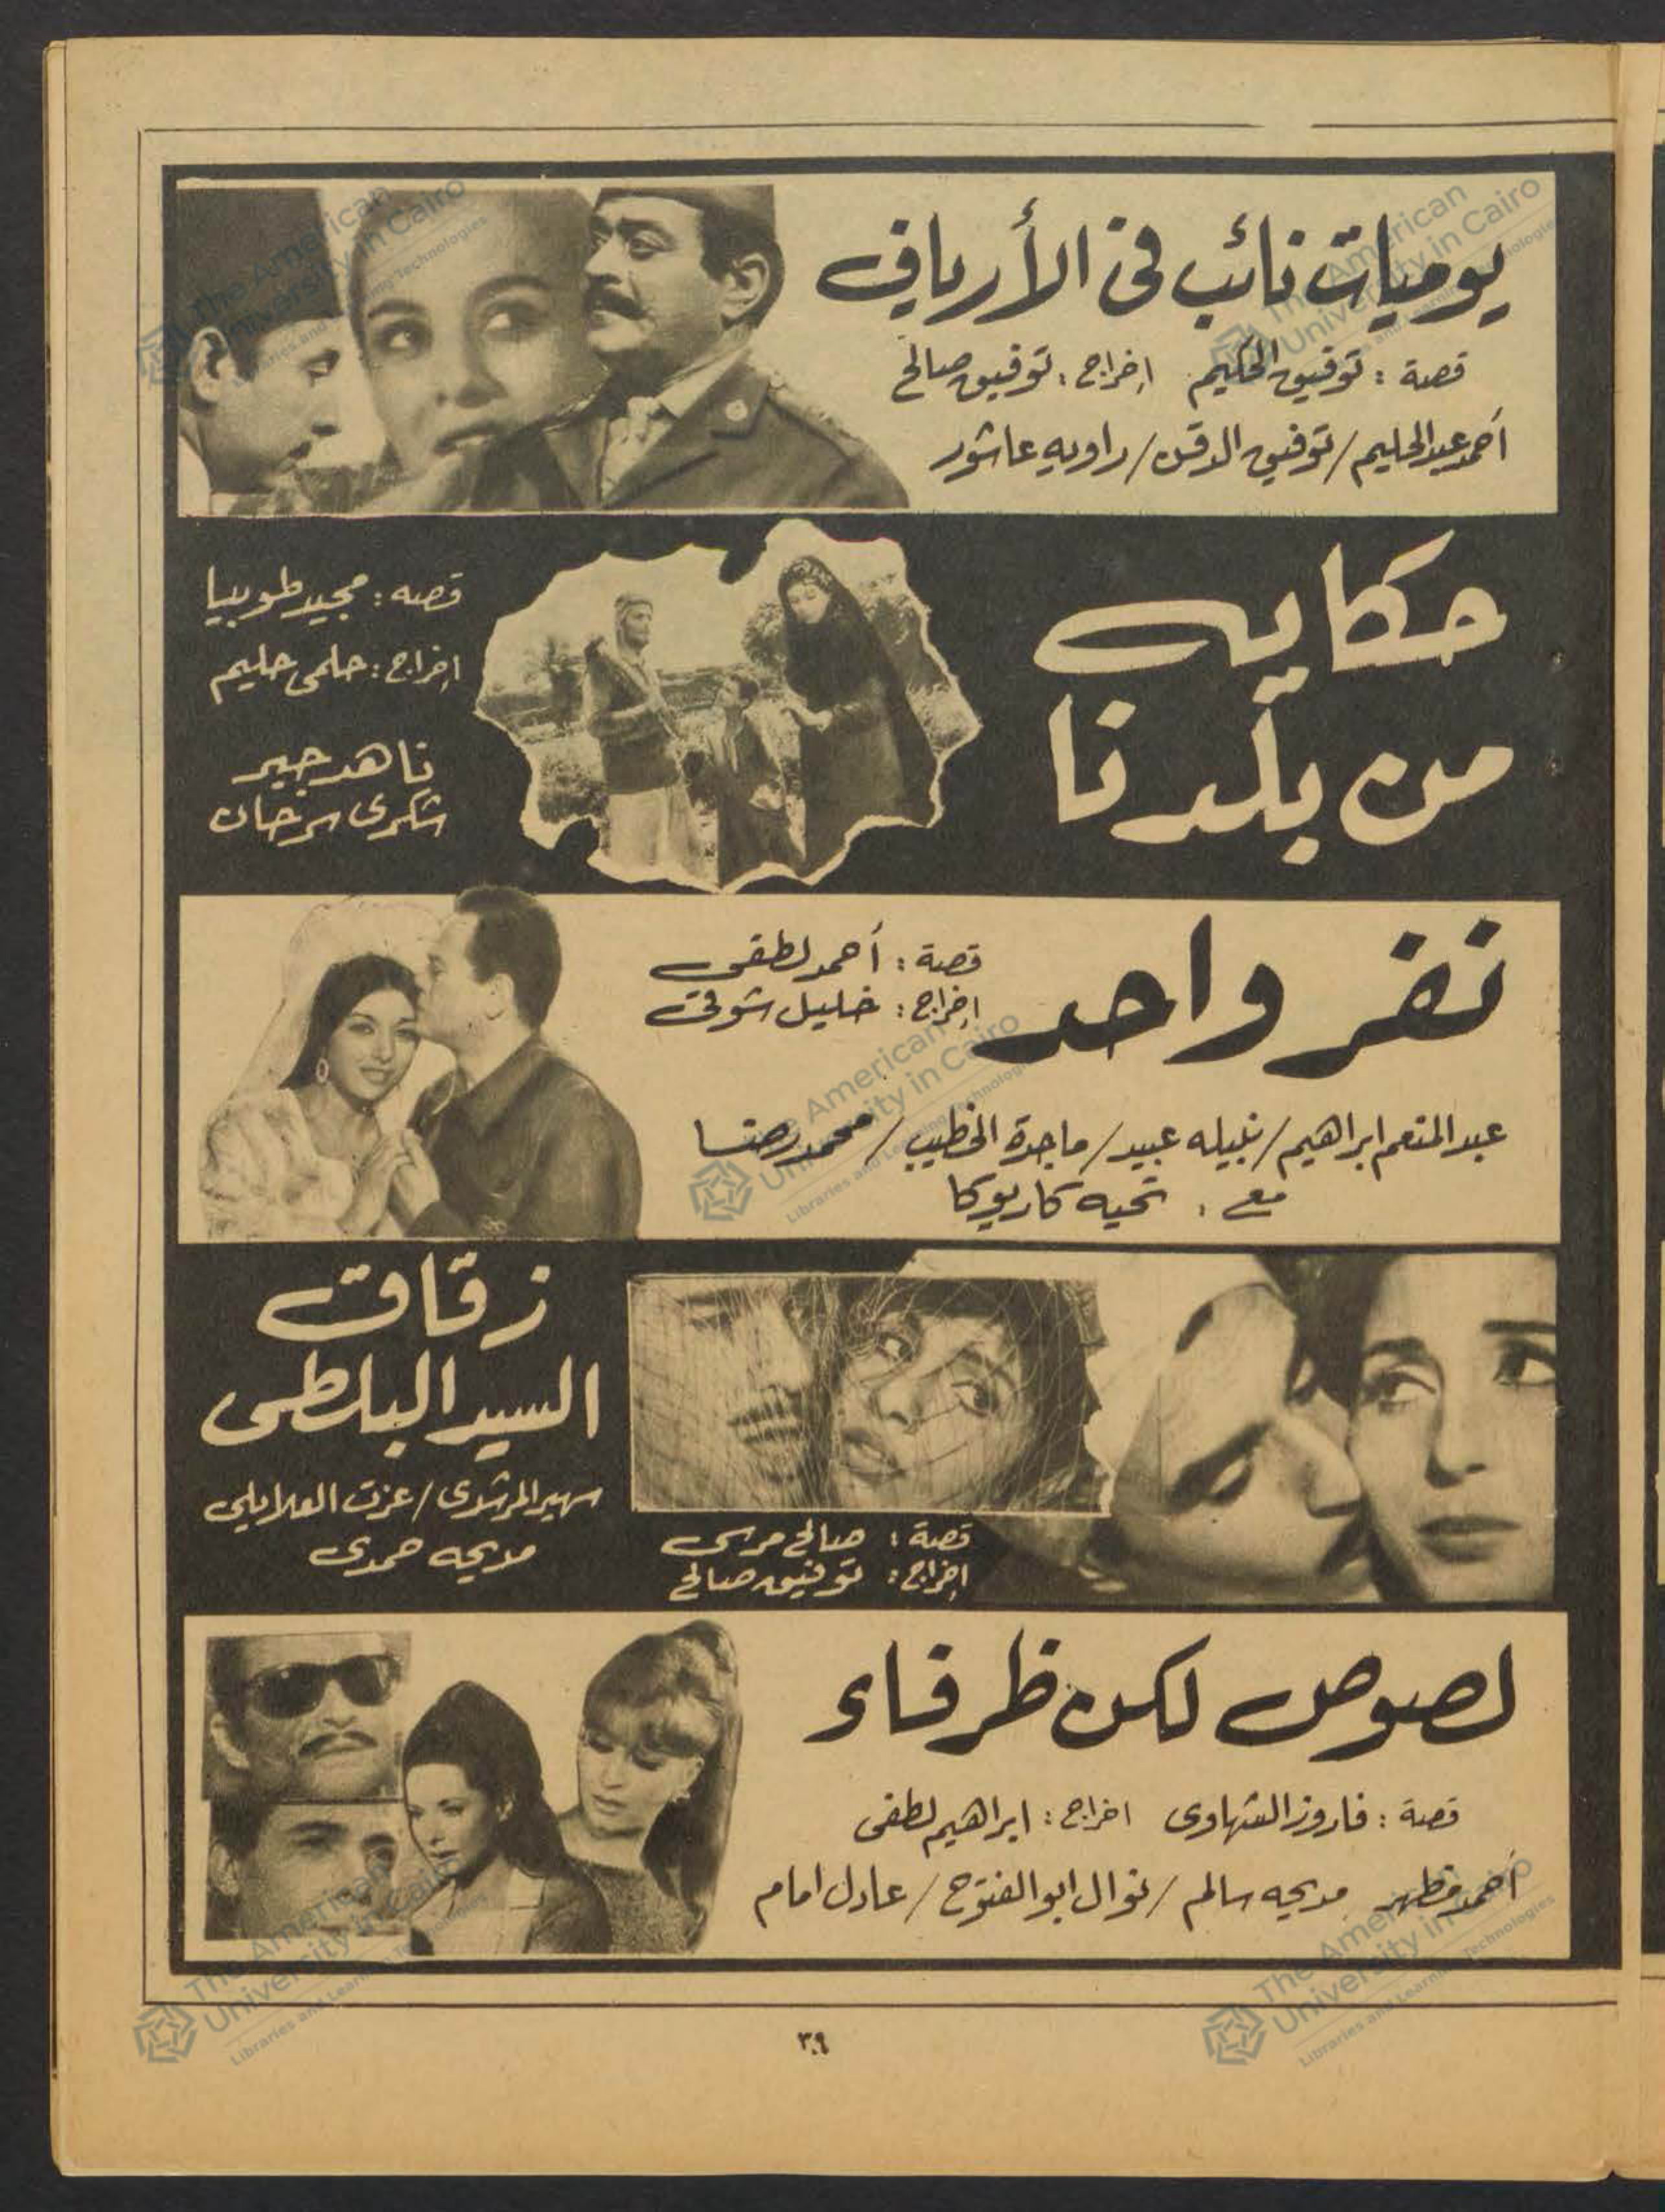 يوميات نائب فى الأرياف
قصة : توفيق الحكيم إخراج : توفيق صالح
أحمد عبد الحليم / توفيق الدقن / راويه عاشور
حكايه
من بلدنا
قصه : مجيد طوبيا
إخراج : حلمى حليم
ناهد جبر
شكرى سرحان
نفر واحد
قصة : أحمد لطفى
إخراج : خليل شوقى
عبد المنعم ابراهيم / نبيله عبيد / ماجدة الخطيب / محمد رضا
مع : تحيه كاريوكا
زقاق
السيد البلطى
سهير المرشدى / عزت العلايلى
مديحه حمدى
قصة : صالح مرسى
إخراج : توفيق صالح
لصوص لكن ظرفاء
قصة : فاروق الشهاوى اخراج : ابراهيم لطفى
أحمد مظهر مديحه سالم / نوال ابو الفتوح / عادل امام
٣٩
The American University in Cairo
Libraries and Learning Technologies